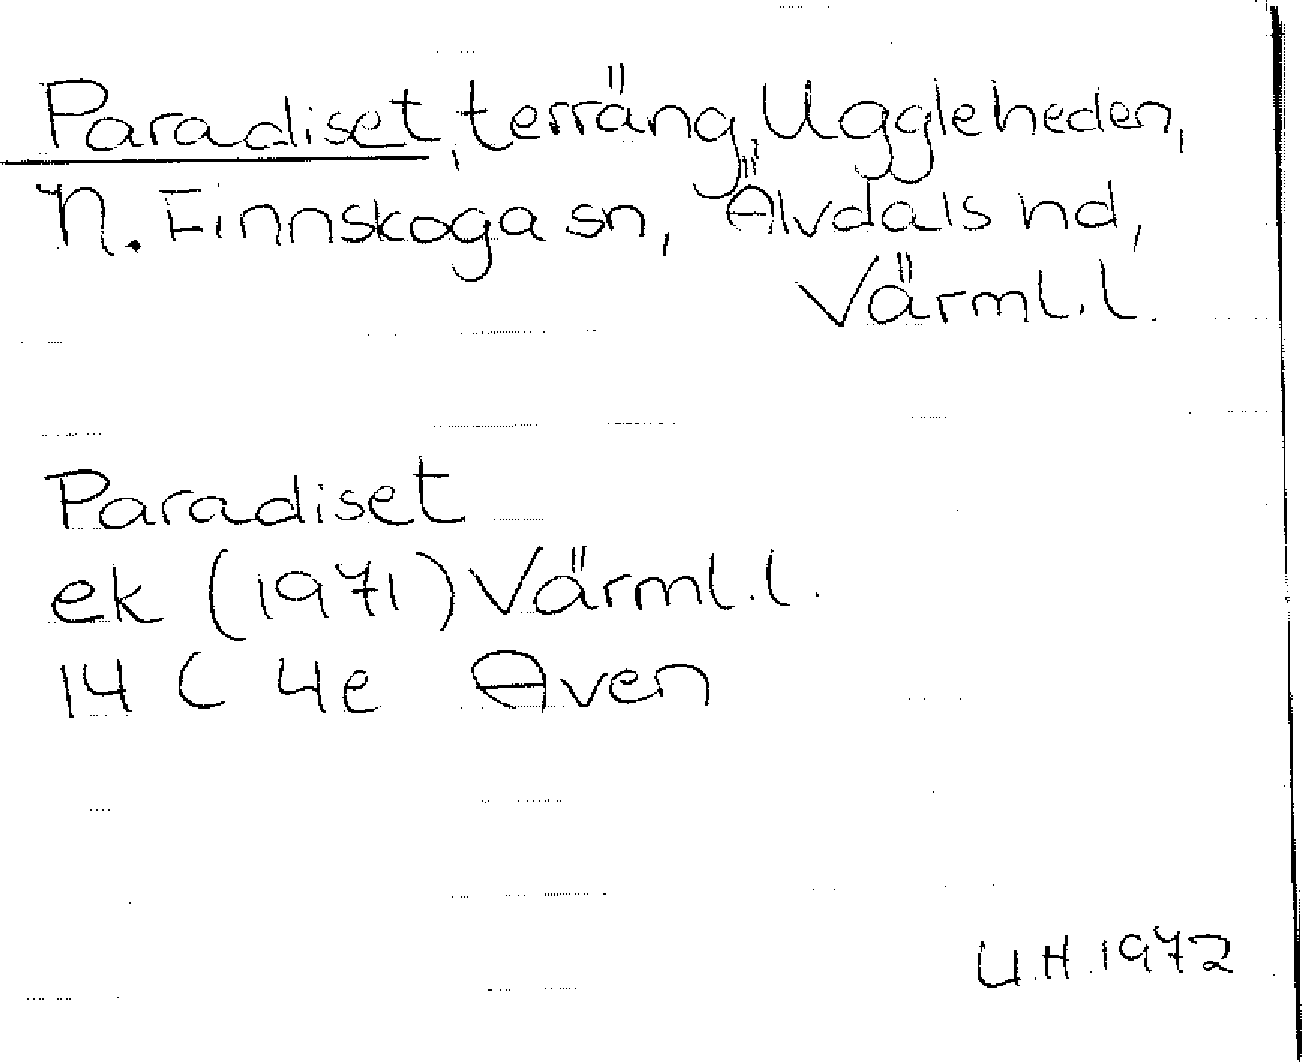 Paradiset, terräng, Uggleheden,
N. Finnskoga sn, Älvdals nd,
Värml. l.
Paradiset
ek (1971) Värml. l.
14 C 4e Aven
U H 1972